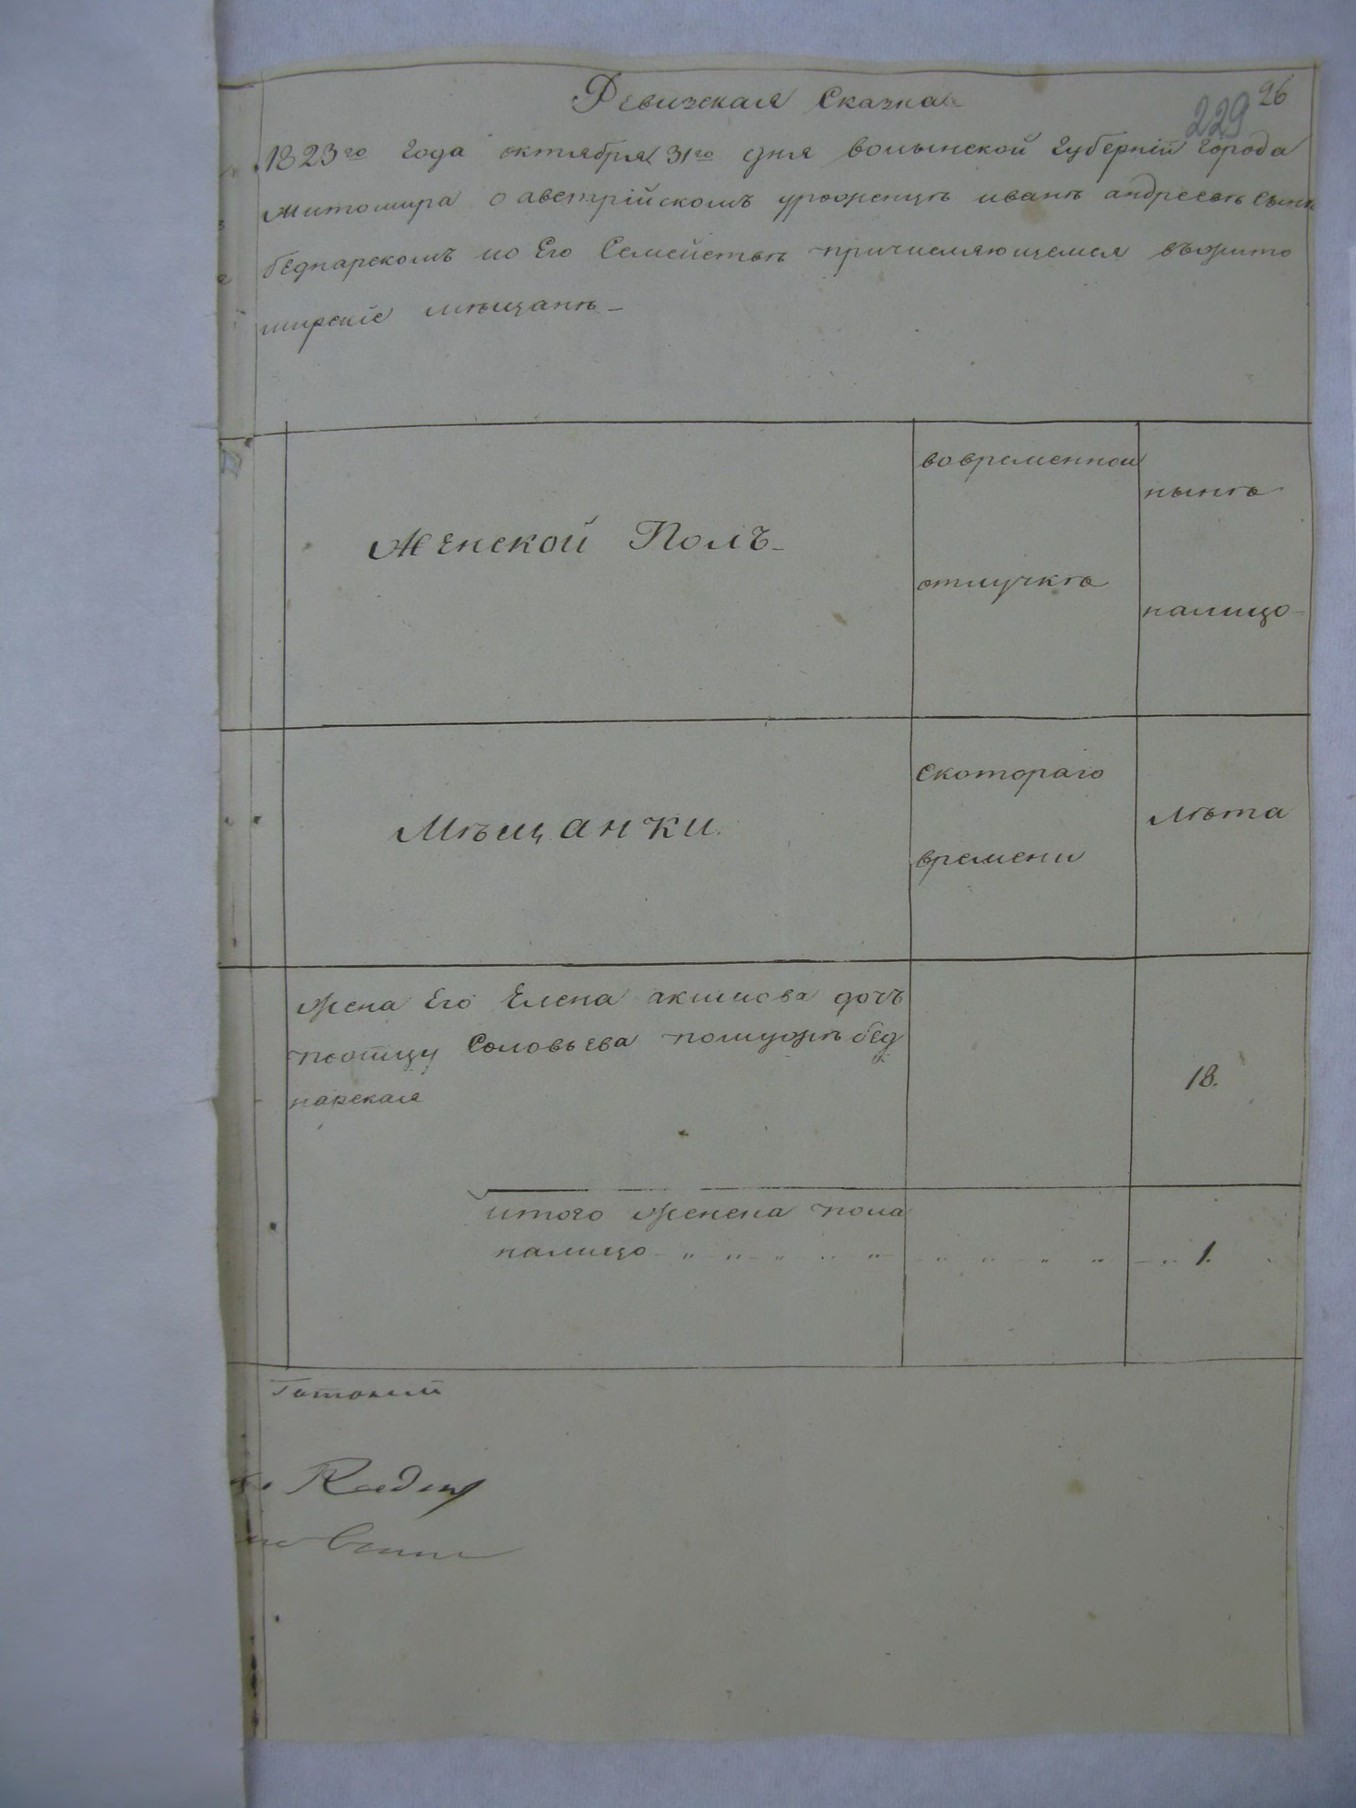 Ревизская Сказка
26
229
1823го года октября 31го дня волынской губерній города
Житомира о австрійскомъ уроженцѣ иванѣ андреевѣ сынѣ
беднарскомъ ио Его Семействѣ причисляющемся въжито
мирскіе мѣщанѣ
вовременной
отлучкѣ
нынѣ
налицо
Женской Полъ
Мѣщанки
скотораго
времени
Лѣта
жена Его Елена акимова дочь
поотцу Соловьева помужѣ бед
нарская
18.
итого женска пола
налицо 1.